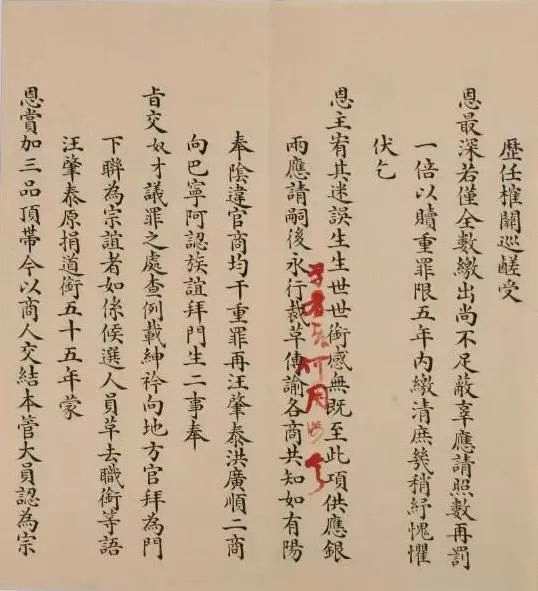 歷任榷關巡鹺受
恩最深若僅全數繳出尚不足蔽辜應請照數再罰
一倍以贖重罪限五年內繳清庶幾稍紓愧懼
伏乞
恩主宥其迷誤生生世世銜感無既至此項供應銀
兩應請嗣後永行裁革傳諭各商共知如有陽
奉陰違官商均干重罪再汪肇泰洪廣順二商
向巴寧阿認族誼拜門生二事奉
旨交奴才議罪之處查例載紳衿向地方官拜為門
下聯為宗誼者如係候選人員革去職銜等語
汪肇泰原捐道銜五十五年蒙
恩賞加三品頂帶今以商人交結本管大員認為宗